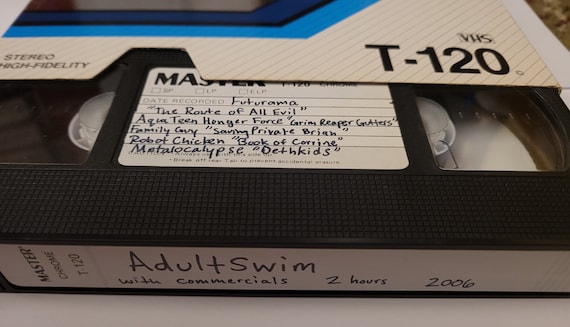 STEREO
HIGH-FIDELITY
VHS
T-120
MASTER T-120 CHROME
SP LP ELP
DATE RECORDED Futurama
"The Route of All Evil"
Aqua Teen Hunger Force "Grim Reaper Gutters"
Family Guy "Saving Private Brian"
Robot Chicken "Book of Corrine"
Metalocalypse "Dethkids"
• Break off rear Tab to prevent accidental erasure
MASTER
CHROME
T-120
AdultSwim
with commercials 2 hours 2006